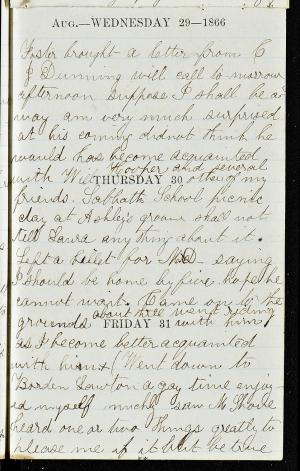 Aug.—WEDNESDAY 29—1866
Foster brought a letter from C
J Dunning will call to morrow
afternoon suppose I shall be a
way am very much surprised
at his coming did not think he
would has become acquainted
with Will Hooper and several
THURSDAY 30 other of my
friends. Sabbath School picnic
day at Ashley's grove shall not
tell Laura any thing about it.
Left a billet for D saying
I should be home by five hope he
cannot wait. Came on to the
grounds about three went riding
FRIDAY 31 with him
as I become better acquainted
with him (Went down to
Borden Lawton a gay time enjoy
ed myself much saw M Shove
heard one or two things greatly to
please me if it but be true